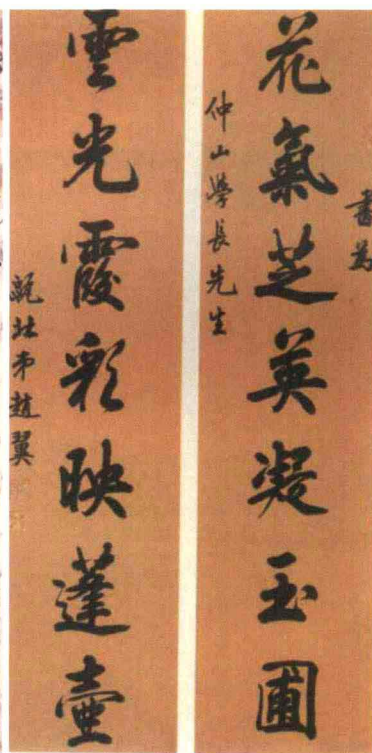 書為
花氣芝英凝玉圃
仲山學長先生
雲光霞彩映蓬壺
甌北弟趙翼